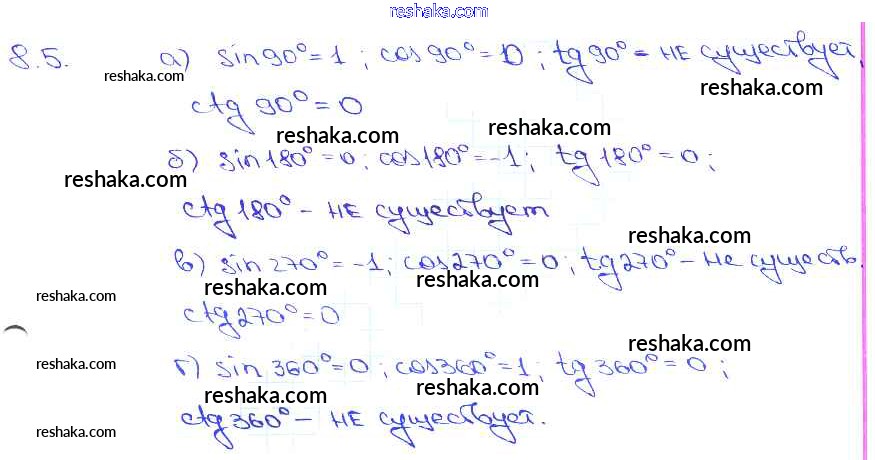 reshaka.com
8.5. а) sin 90° = 1 ; cos 90° = 0 ; tg 90° - не существует,
reshaka.com
reshaka.com
ctg 90° = 0
reshaka.com
reshaka.com
б) sin 180° = 0 ; cos 180° = -1 ; tg 180° = 0 ;
reshaka.com
ctg 180° - не существует
reshaka.com
в) sin 270° = -1 ; cos 270° = 0 ; tg 270° - не существ.
reshaka.com reshaka.com reshaka.com
ctg 270° = 0
reshaka.com
г) sin 360° = 0 ; cos 360° = 1 ; tg 360° = 0 ;
reshaka.com
reshaka.com reshaka.com
ctg 360° - не существует.
reshaka.com